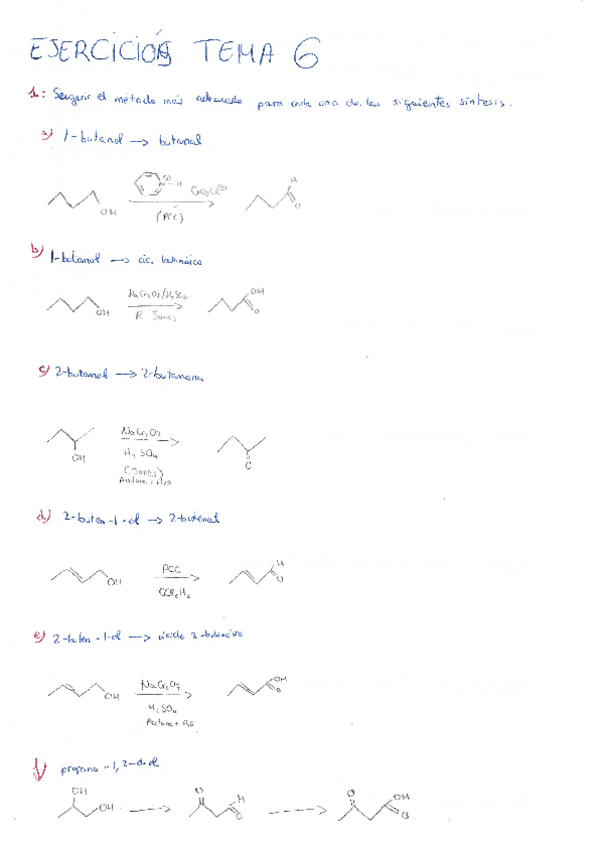 EJERCICIOS TEMA 6
1: Sugerir el método más adecuado para cada una de las siguientes síntesis.
a) 1-butanol → butanal
H
OH
(PCC)
O
b) 1-butanol → ác. butanóico
Na Cr2O7/H2SO4
OH
OH
R Jones
O
c) 2-butanol → 2-butanona
Na Cr2O7
OH
H2 SO4
(Jones)
O
d) 2-buten-1-ol → 2-butenal
PCC
H
OH
CCl2H2
O
e) 2-buten-1-ol → ácido 2-butenóico
Na Cr2O7
OH
OH
H2SO4
O
f) propano-1,2-diol
OH
OH
O
H
O
O
OH
O